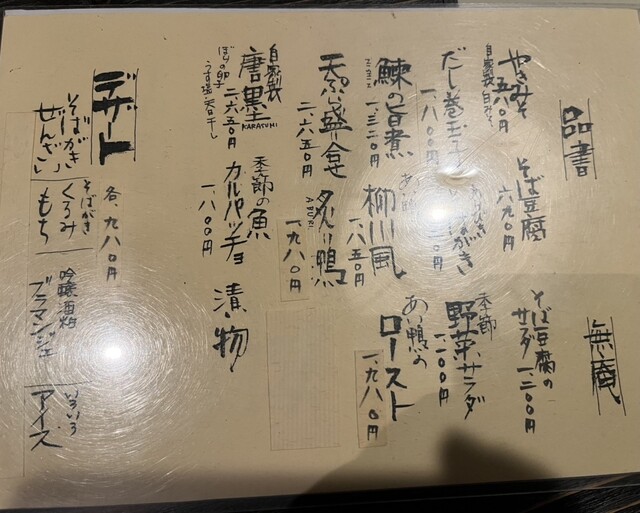 品書
無庵
やきみそ
五八〇円
そば豆腐
六九〇円
そば豆腐の
サラダ 一、二〇〇円
だし巻玉子
一、八〇〇円
がき
季節
野菜サラダ
一、二〇〇円
鰊の旨煮
一、三二〇円
柳川風
一、八五〇円
あい鴨の
ロースト
一、九八〇円
天ぷら盛合せ
二、六五〇円
炙り鴨
一、九八〇円
自家製
唐墨
KARASUMI
ぼらの卵
うす塩 天日干し
二、六五〇円
季節の魚
カルパッチョ
一、八〇〇円
漬物
デザート
各、九八〇円
そばがき
ぜんざい
そばがき
くるみ
もち
吟醸酒粕
ブラマンジェ
いろいろ
アイス